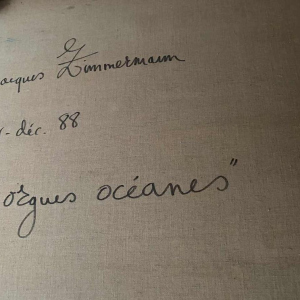 acques Zimmermann
- déc. 88
orgues océanes"